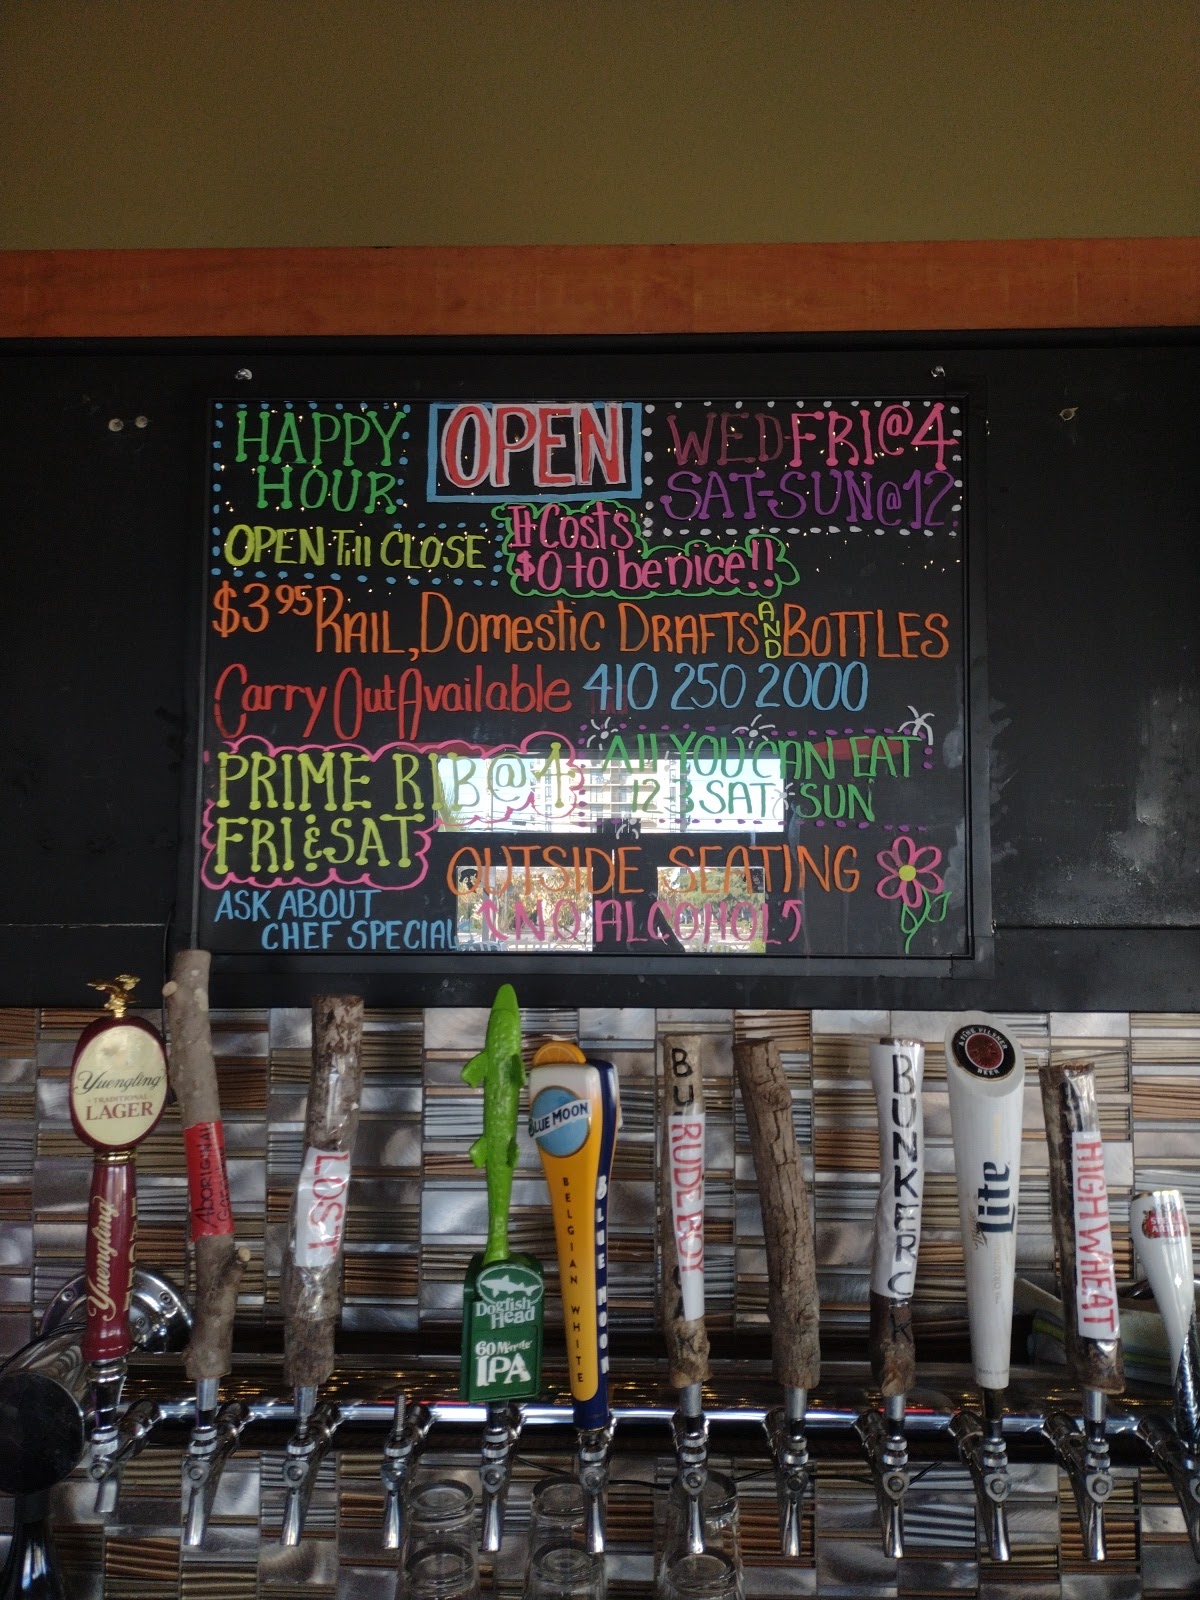 HAPPY
HOUR
OPEN
WED-FRI@4
SAT-SUN@12
OPEN Till CLOSE
It Costs
$0 to be nice!!
$3.95 RAIL, DOMESTIC DRAFTS AND BOTTLES
Carry Out Available 410 250 2000
PRIME RIB @ 4
FRI & SAT
All YOU CAN EAT
12 3 SAT SUN
OUTSIDE SEATING
NO ALCOHOL
ASK ABOUT
CHEF SPECIAL
Yuengling
TRADITIONAL
LAGER
Yuengling
ABORIGINAL
LOST
Dogfish
Head
60 Minute
IPA
BLUE MOON
BELGIAN WHITE
BLUE MOON
RUDE BOY
BUNKER C
A FINE PILSNER
BEER
Miller
Lite
HIGH WHEAT
STELLA
ARTOIS